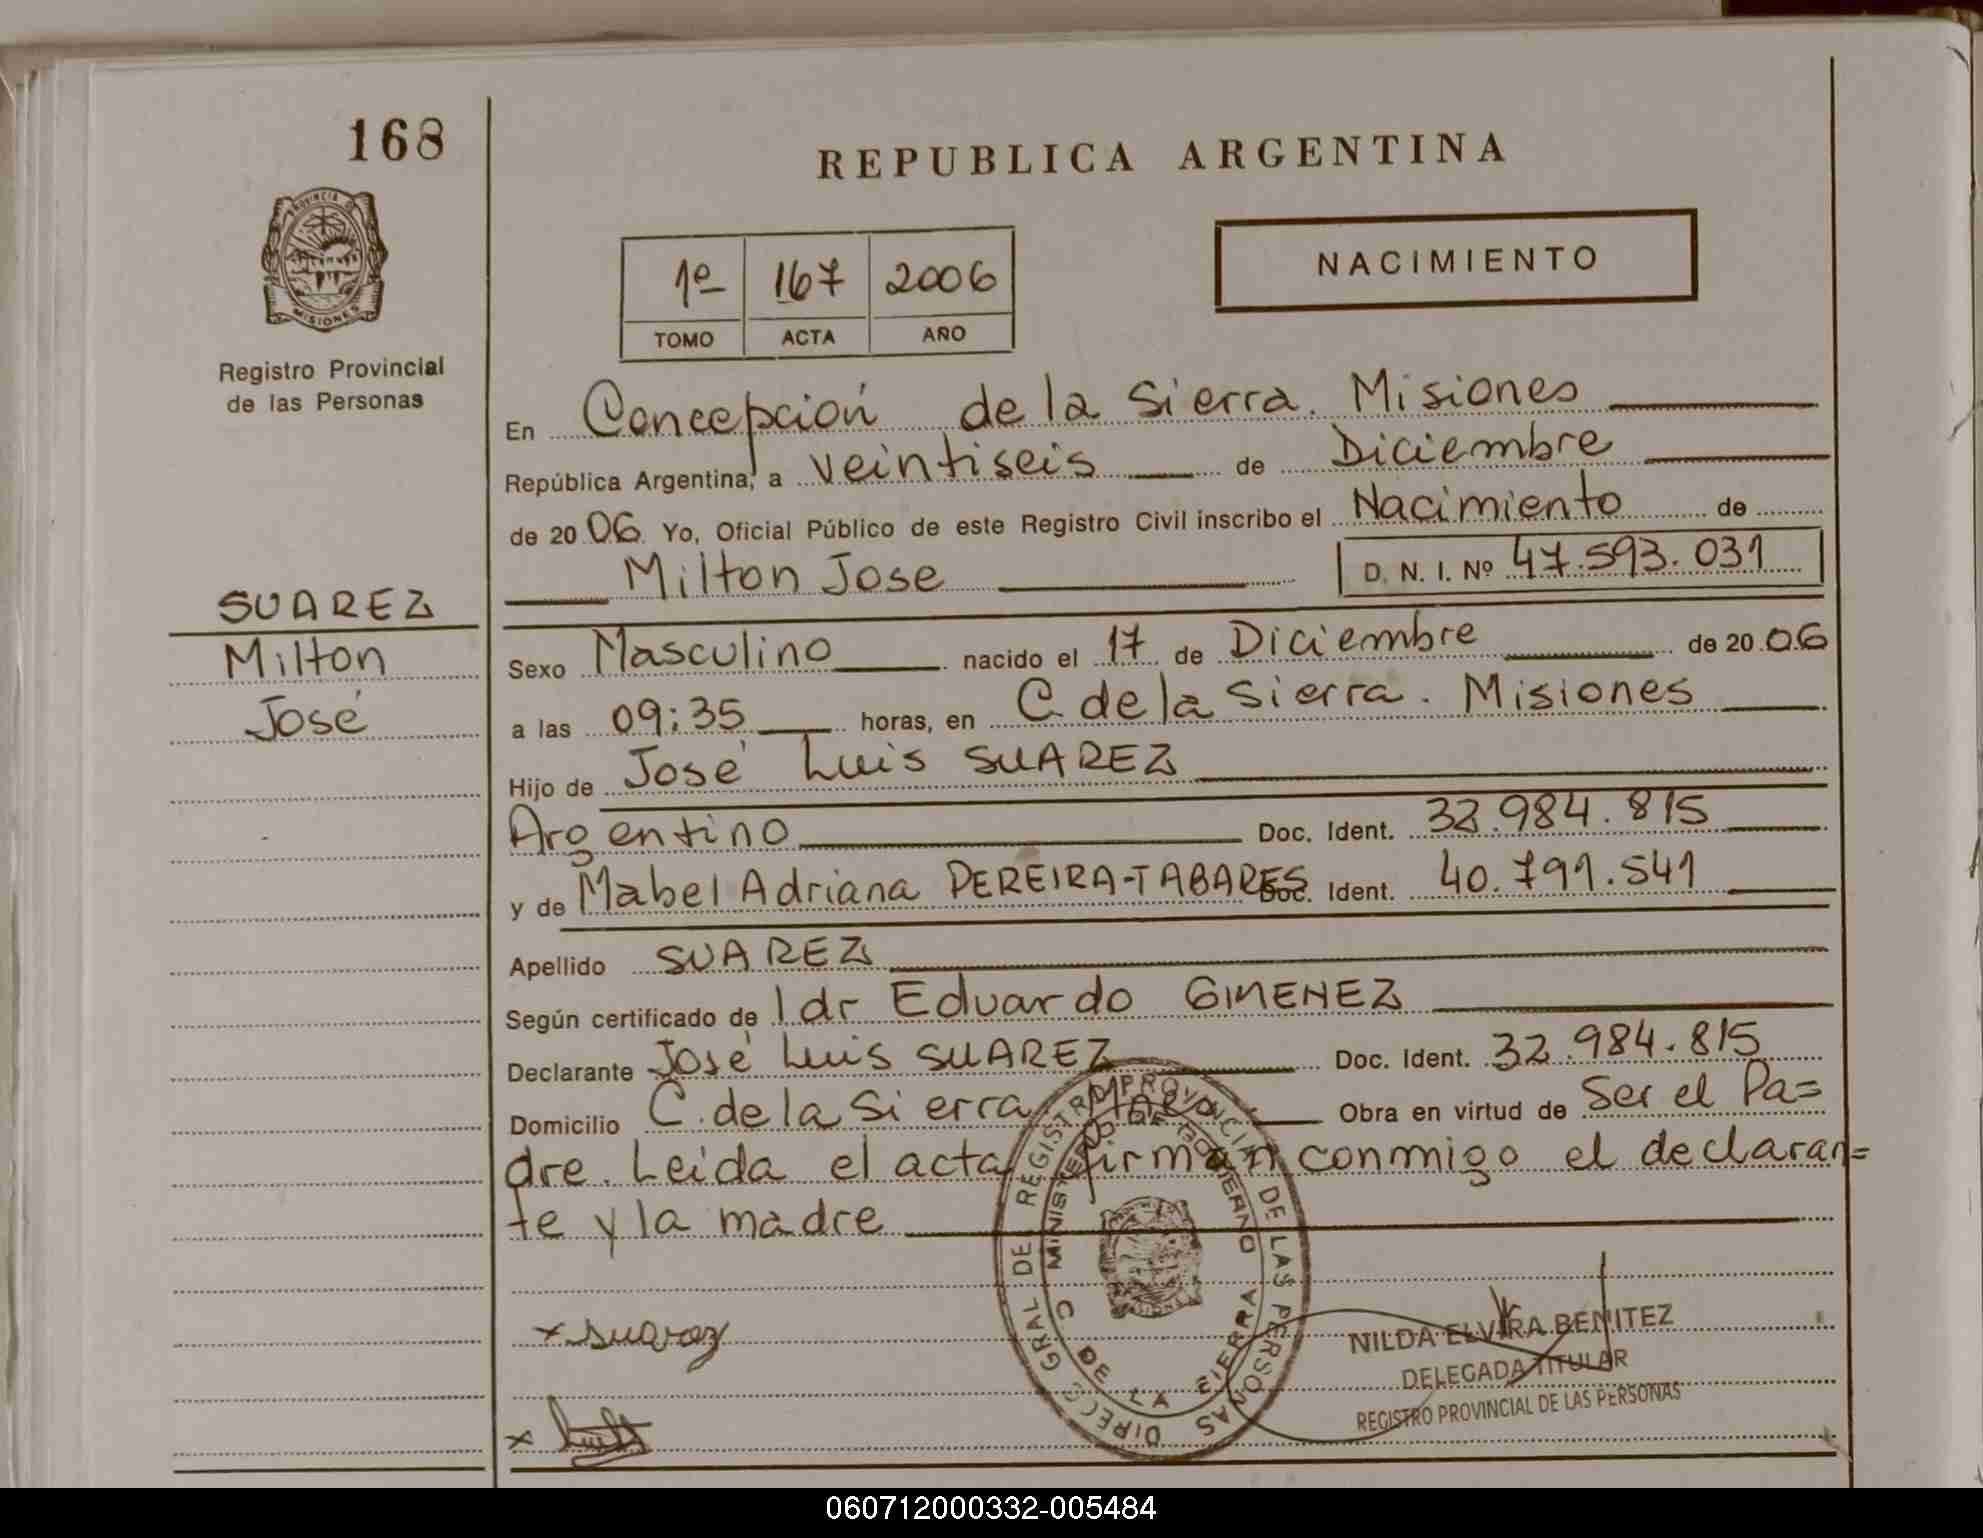 168
REPUBLICA ARGENTINA
PROVINCIA DE
MISIONES
Registro Provincial
de las Personas
1º 167 2006
TOMO ACTA AÑO
NACIMIENTO
En Concepción de la Sierra. Misiones
República Argentina, a veintiseis de Diciembre
de 2006 Yo, Oficial Público de este Registro Civil inscribo el Nacimiento de
Milton Jose D. N. I. Nº 47.593.031
SUAREZ
Milton
José
Sexo Masculino nacido el 17 de Diciembre de 2006
a las 09:35 horas, en C. de la Sierra. Misiones
Hijo de José Luis SUAREZ
Argentino Doc. Ident. 32.984.815
y de Mabel Adriana PEREIRA-TABARES Doc. Ident. 40.791.541
Apellido SUAREZ
Según certificado de Idr Eduardo GIMENEZ
Declarante José Luis SUAREZ Doc. Ident. 32.984.815
Domicilio C. de la Sierra Obra en virtud de Ser el Pa=
dre. Leida el acta firman conmigo el declaran=
te y la madre
DIRECC. GRAL DE REGISTRO PROVINCIAL DE LAS PERSONAS
MINISTERIO DE GOBIERNO
C DE LA SIERRA
x suarez
x
NILDA ELVIRA BENITEZ
DELEGADA TITULAR
REGISTRO PROVINCIAL DE LAS PERSONAS
060712000332-005484